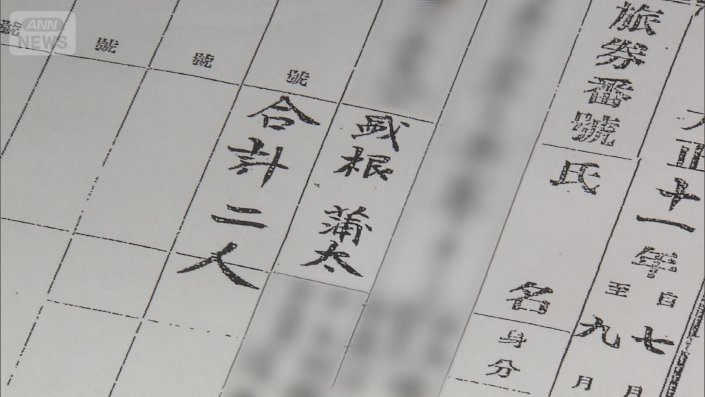 ANN NEWS
大正十一年 自七月
至九月
旅券番號 氏名 身分
盛根 蒲太
號 合計二人
號
號
號